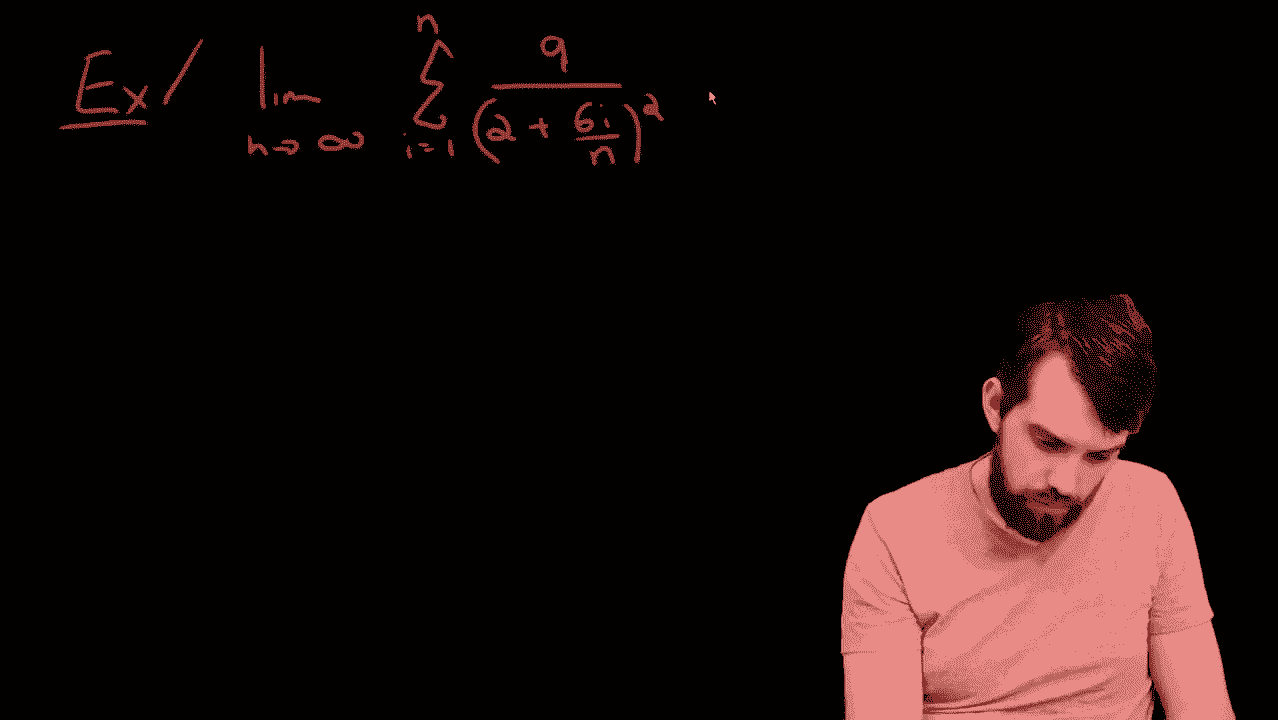 Ex/ lim n→∞ n Σ i=1 9 / (2 + 6i/n)^2